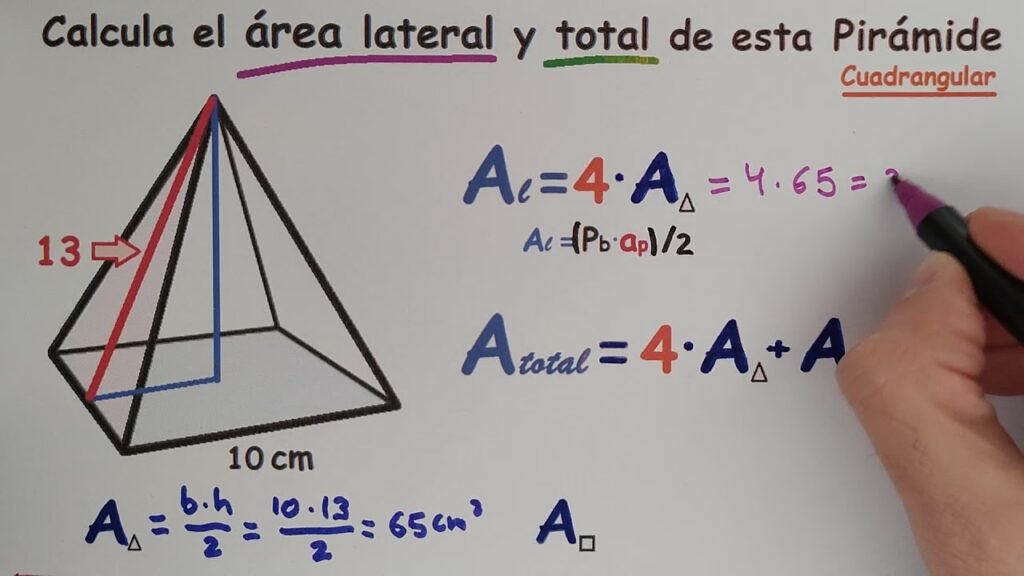 Calcula el área lateral y total de esta Pirámide
Cuadrangular
Aℓ = 4 · A△ = 4 · 65 =
Aℓ = (Pb · ap) / 2
13
Atotal = 4 · A△ + A
10 cm
A△ = b·h/2 = 10·13/2 = 65 cm²
A□